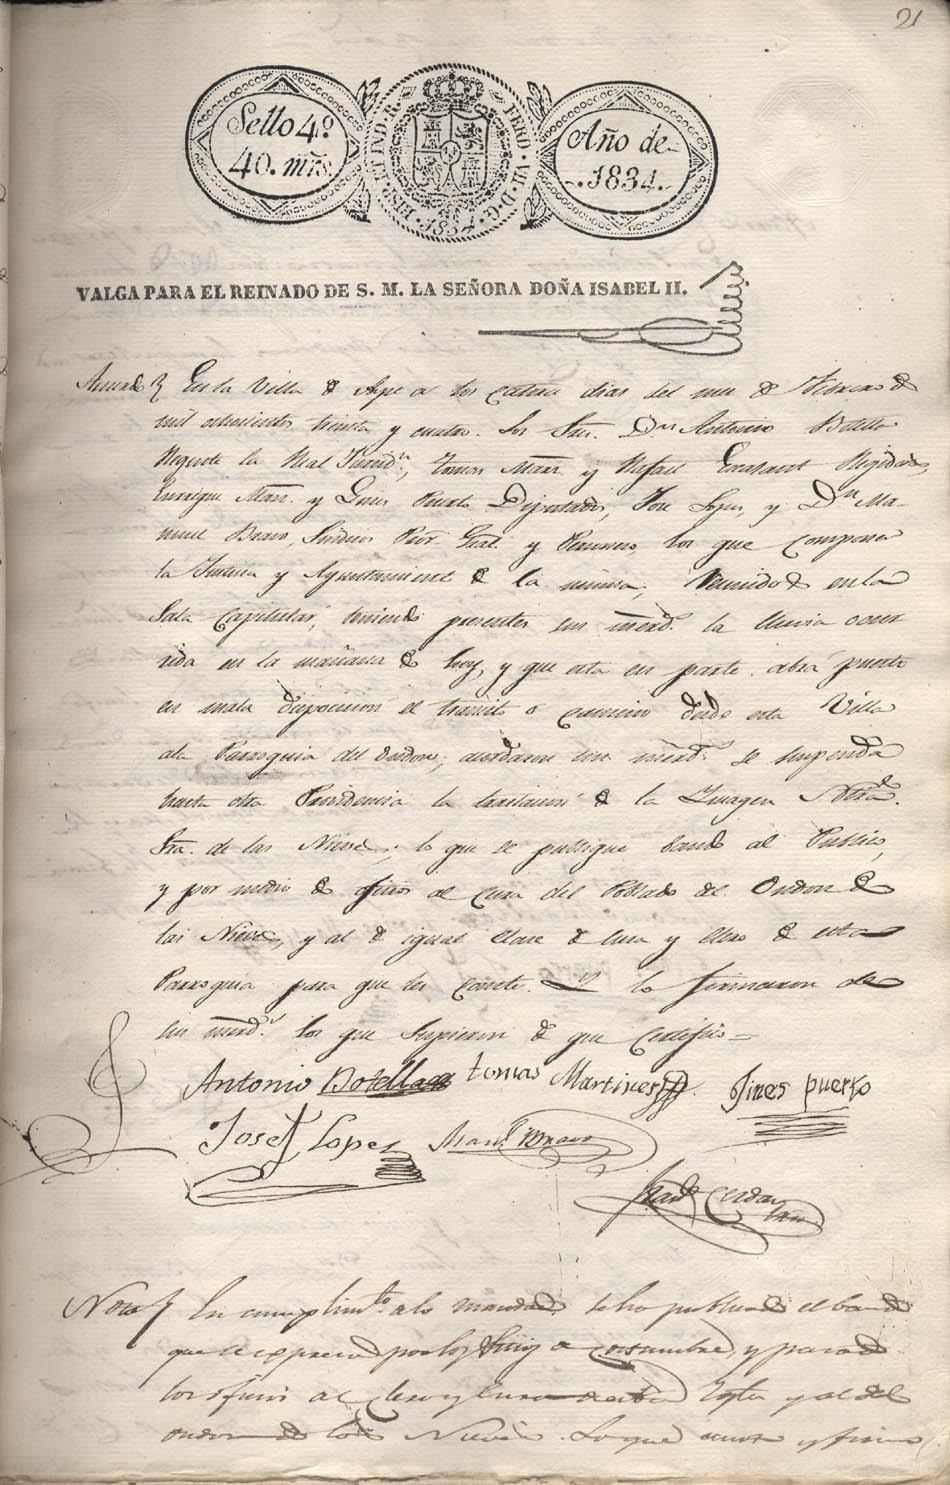 21
Sello 4º
40. mrs.
HISP. ET IND. R. FERD. VII. D. G. 1834.
Año de
1834.
VALGA PARA EL REINADO DE S. M. LA SEÑORA DOÑA ISABEL II.
Acuerdo En la Villa de Aspe a los catorce dias del mes de Febrero de
mil ochocientos treinta y cuatro. Los Sres. Dn Antonio Botella
Regente la Real Jurisdn, Tomas Marz. y Rafael Regidores,
Enrrique Marz. y Gines Puerto Diputados, Jose Lopez, y Dn Ma-
nuel Bravo, Sindicos Pror Gral. y Personero, los que componen
la Justicia y Ayuntamiento de la misma, reunidos en la
Sala Capitular, teniendo presentes sus merds. la lluvia ocur
rida en la mañana de hoy, y que esta en parte abrá puesto
en mala disposicion el transito o camino desde esta Villa
ala Parroquia del Ondon; acordaron sus merds. se suspenda
hasta otra Providencia la traslacion de la Imagen Ntra.
Sra. de las Nieves; lo que se publique bando al Publico,
y por medio de oficios al Cura del Poblado del Ondon de
las Nieves, y al de igual clase de Cura y Clero de esta
Parroquia para que les conste. Y lo firmaron de
sus merds. los que supieron de que certifico=
Antonio Botella tomas Martines Gines puerto
Josef Lopez Manl. Bravo
Cerdan
Nota En cumplimto. alo mandado se ha publicado el bando
que se expresa por los sitios de costumbre, y pasado
los oficios al Clero y Cura de esta Villa y al del
Ondon de las Nieves. Lo que anoto y firmo